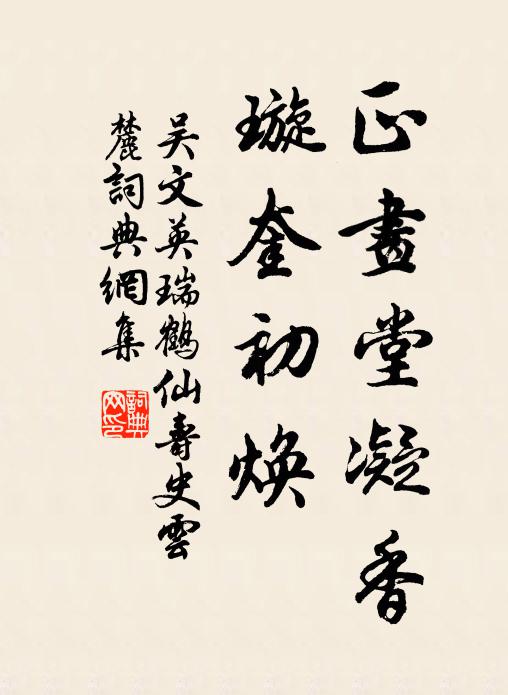 正畫堂凝香
璇奎初焕
吴文英瑞鶴仙壽史雲
麓詞典網集
詞典
网印